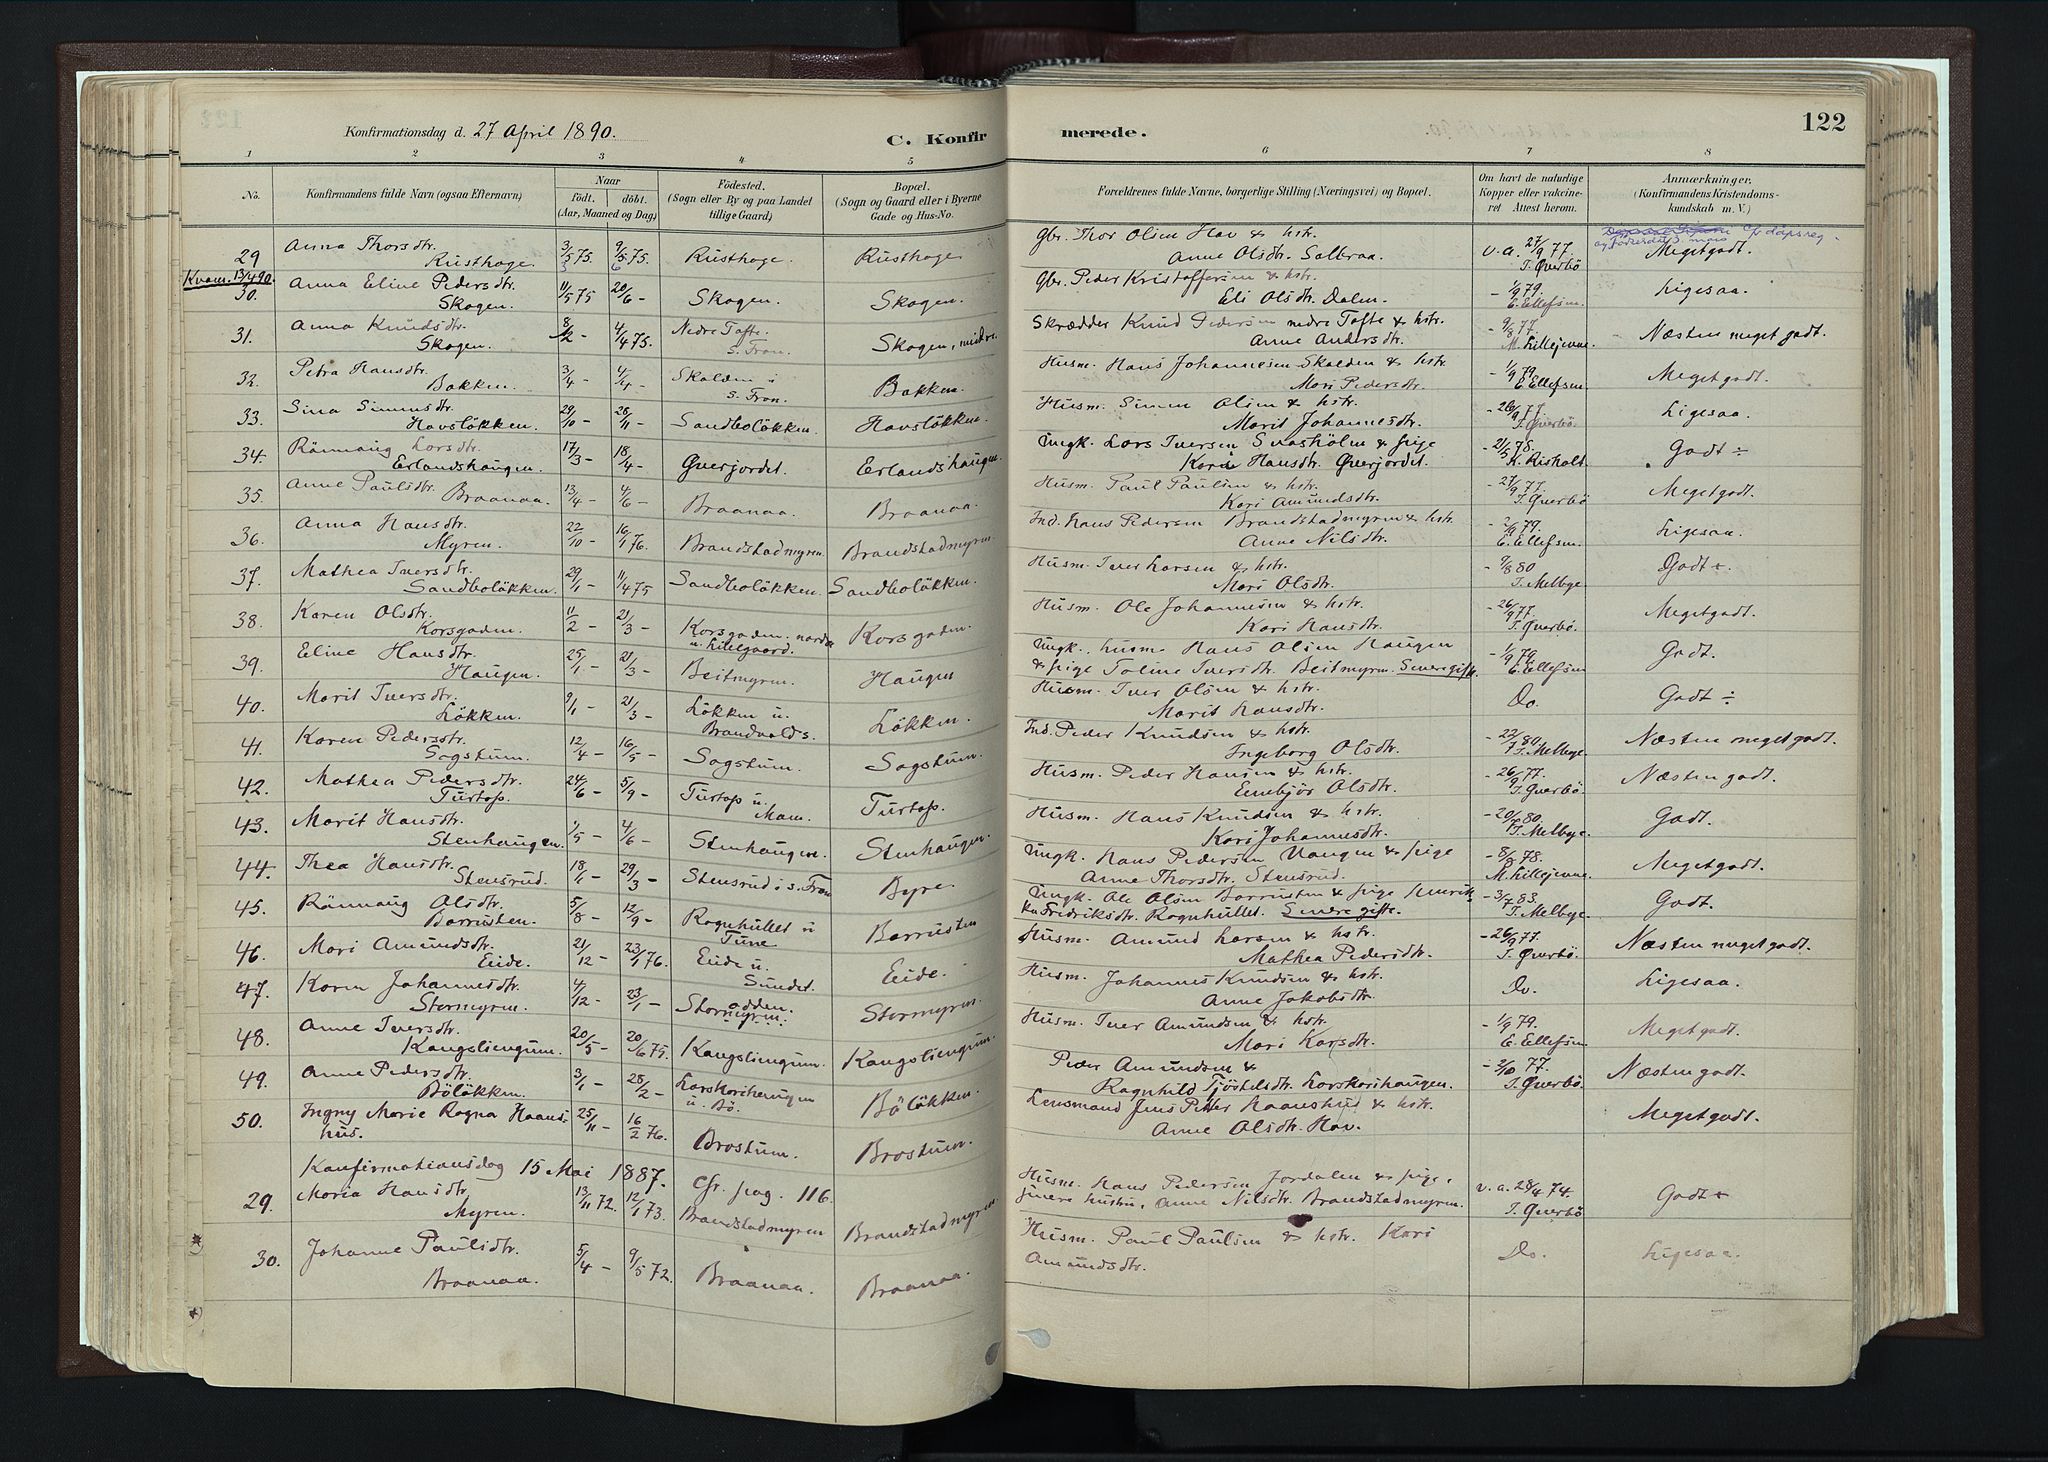 Konfirmationsdag d. 27 April 1890.
C. Konfirmerede.
122
1 2 3 4 5 6 7 8
No.
Konfirmandens fulde Navn (ogsaa Efternavn)
Naar
födt. döbt.
(Aar, Maaned og Dag)
Födested.
(Sogn eller By og paa Landet
tillige Gaard)
Bopæl.
(Sogn og Gaard eller i Byerne
Gade og Hus-No.
Forældrenes fulde Navne, borgerlige Stilling (Næringsvei) og Bopæl.
Om havt de naturlige
Kopper eller vakcine-
ret Attest herom.
Anmærkninger.
(Konfirmandens Kristendoms-
kundskab m. V.)
29 Anna Thorsdtr. 3/5 75. 9/5 75. Rusthage. Rusthage Gbr. Thor Olsen Hov & hstr. v. a. 27/9 77. Megetgodt.
Rusthage. Anne Olsdtr. Solbraa. T. Qverbö
Kvam. 13/4 90.
30. Anna Eline Pedersdtr. 11/5 75 20/6 - Skogen. Skogen. Gbr. Peder Kristoffersen & hstr. - 1/9 79. Ligesaa.
Skogen. Eli Olsdtr. Dalen. E. Ellefsen.
31. Anna Knudsdtr. 8/2 - 4/4 75. Nedre Tofte Skogen, midre Skrædder Knud Pedersen nedre Tofte & hstr. - 9/8 77. Næsten meget godt.
Skogen. S. Fron. Anne Andersdtr. M. Lillejevne.
32. Petra Hansdtr. 3/4 - 4/4 - Skalden i Bakken. Husm. Hans Johannesen Skalden & hstr. - 1/9 79. Megetgodt.
Bakken. S. Fron. Mari Pedersdtr. E. Ellefsen
33. Sina Simensdtr. 29/10 - 28/11 - Sandbolökken. Havslökken. Husm. Simen Olsen & hstr. - 26/9 77. Ligesaa.
Havslökken. Marit Johannesdtr. T. Qverbö.
34. Rönnaug Larsdtr. 17/3 - 18/4 - Qverjordet. Erlandshaugen. Ungk. Lars Iversen Svasholm & pige - 21/5 78. Godt ÷
Erlandshaugen. Kari Hansdtr. Qverjordet. K. Risholt.
35. Anne Paulsdtr. Braanaa. 13/4 - 4/6 - Braanaa. Braanaa. Husm. Paul Paulsen & hstr. - 27/9 77. Megetgodt.
Kari Amundsdtr. T. Qverbö
36. Anna Hansdtr. 22/10 - 16/1 76. Brandstadmyren. Brandstadmyren. Ind. Hans Pedersen Brandstadmyren & hstr. - 2/9 79. Ligesaa.
Myren. Anne Nilsdtr. E. Ellefsen.
37. Mathea Iversdtr. 29/1 - 11/4 75 Sandbolökken. Sandbolökken. Husm. Iver Larsen & hstr. - 9/8 80 Godt +.
Sandbolökken. Mari Olsdtr. T. Melbye.
38. Karen Olsdtr. 11/2 - 21/3 - Korsgaden. nordre Korsgaden. Husm. Ole Johannesen & hstr. - 26/9 77. Megetgodt.
Korsgaden. u. Lilegaard. Kari Hansdtr. T. Qverbö.
39. Eline Hansdtr. 25/1 - 21/3 - Beitmyren. Haugen Ungk., husm. Hans Olsen Haugen - 1/9 79. Godt.
Haugen. & pige Toline Iversdtr. Beitmyren. Senere gifte. E. Ellefsen
40. Marit Iversdtr. 9/1 - 21/3 - Lökken u. Lökken. Husm. Iver Olsen & hstr. Do. Godt ÷
Lökken. Brandvolds. Marit Hansdtr.
41. Karen Pedersdtr. 12/4 - 16/5 - Sagstuen. Sagstuen. Ind. Peder Knudsen & hstr. - 22/7 80. Næsten megetgodt.
Sagstuen. Ingeborg Olsdtr. T. Melbye.
42. Mathea Pedersdtr. 24/6 - 5/9 - Turtop u. Turtop. Husm. Peder Hansen & hstr. - 26/9 77. Næsten godt.
Turtop. Moen. Embjör Olsdtr. T. Qverbö.
43. Marit Hansdtr. 1/5 - 4/6 - Stenhaugen. Stenhaugen. Husm. Hans Knudsen & hstr. - 20/7 80. Godt.
Stenhaugen. Kari Johannesdtr. T. Melbye.
44. Thea Hansdtr. 18/1 - 29/3 - Stensrud i S. Fron Byre. Ungk. Hans Pedersen Haugen & pige - 8/6 78. Megetgodt.
Stensrud. Anne Thorsdtr. Stensrud. M. Lillejevne.
45. Rönnaug Olsdtr. 5/8 - 12/9 - Ragnhullet u Borrusten Ungk. Ole Olsen Borrusten & pige Henrik- - 3/7 83. Godt.
Borrusten. Tune ka Fredriksdtr. Ragnhullet. Senere gifte. T. Melbye.
46. Mari Amundsdtr. 21/12 - 23/1 76. Eide u. Eide. Husm. Amund Larsen & hstr. - 26/9 77. Næsten megetgodt.
Eide. Sundet. Mathea Pedersdtr. T. Qverbö.
47. Karen Johannesdtr. 4/12 - 23/1 - Stormyren. Stormyren. Husm. Johannes Knudsen & hstr. Do. Ligesaa.
Stormyren. Anne Jakobsdtr.
48. Anne Iversdtr. 20/5 - 20/6 75. Kongsliengum. Kongsliengum. Husm. Iver Amundsen & hstr. - 1/9 79. Megetgodt.
Kongsliengum. Mari Larsdtr. E. Ellefsen
49. Anne Pedersdtr. 3/1 - 28/2 - Larskarihaugen Bölökken. Peder Amundsen & - 2/10 77. Næsten godt.
Bölökken. u. Bö. Ragnhild Tjöstelsdtr. Larskarihaugen. T. Qverbö.
50. Ingny Marie Ragna Haans- 25/11 - 16/2 76. Brostuen. Brostuen. Lensmand Jens Petter Haanshus & hstr. Megetgodt.
hus. Anne Olsdtr. Hov.
Konfirmationsdag 15 Mai 1887. Cfr. pag. 116.
29. Maria Hansdtr. 13/11 72. 12/1 73. Brandstadmyren Brandstadmyren Husm. Hans Pedersen Jordalen & pige, v. a. 28/4 74. Godt +
Myren. senere hustru, Anne Nilsdtr. Brandstadmyren. T. Qverbö
30. Johanne Paulsdtr. 5/4 - 9/5 72. Braanaa. Braanaa. Husm. Paul Paulsen & hstr. Kari Do. Ligesaa.
Braanaa. Amundsdtr.